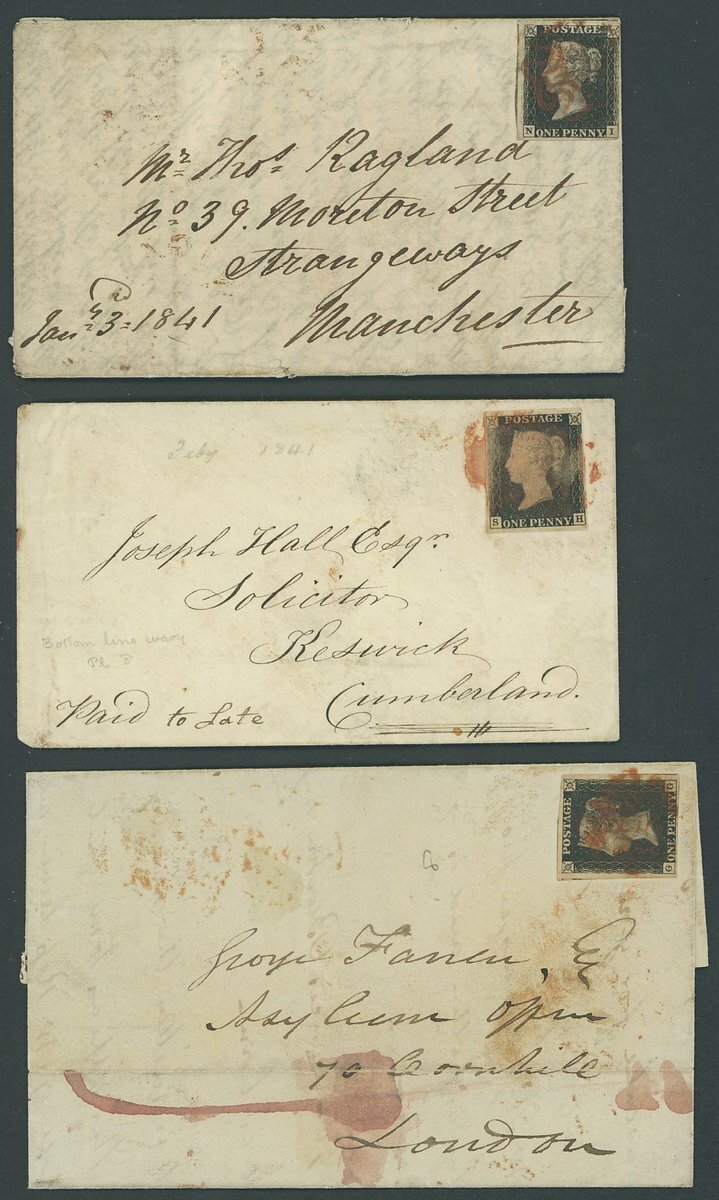 POSTAGE
N ONE PENNY I
Mr. Thos. Ragland
No. 39. Moreton Street
Strangeways
Manchester
Jany 3d 1841
POSTAGE
S ONE PENNY H
Feby 1841
Joseph Hall Esqr.
Solicitor
Keswick
Cumberland.
Bottom line wavy
Pl. 8
Paid to Late
POSTAGE
G ONE PENNY G
George Farren, Eq
Asylum
70 Cornhill
London